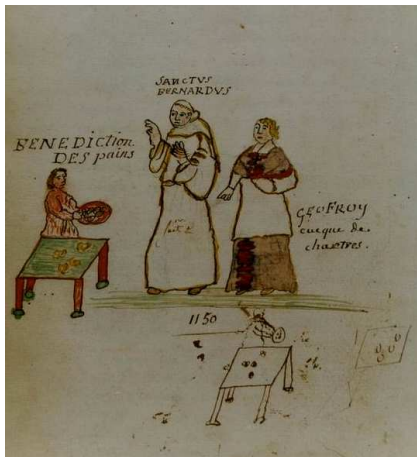 SANCTVS
BERNARDVS
BENEDICTION
DES pains
GEOFROY
eueque de
chartres.
1150